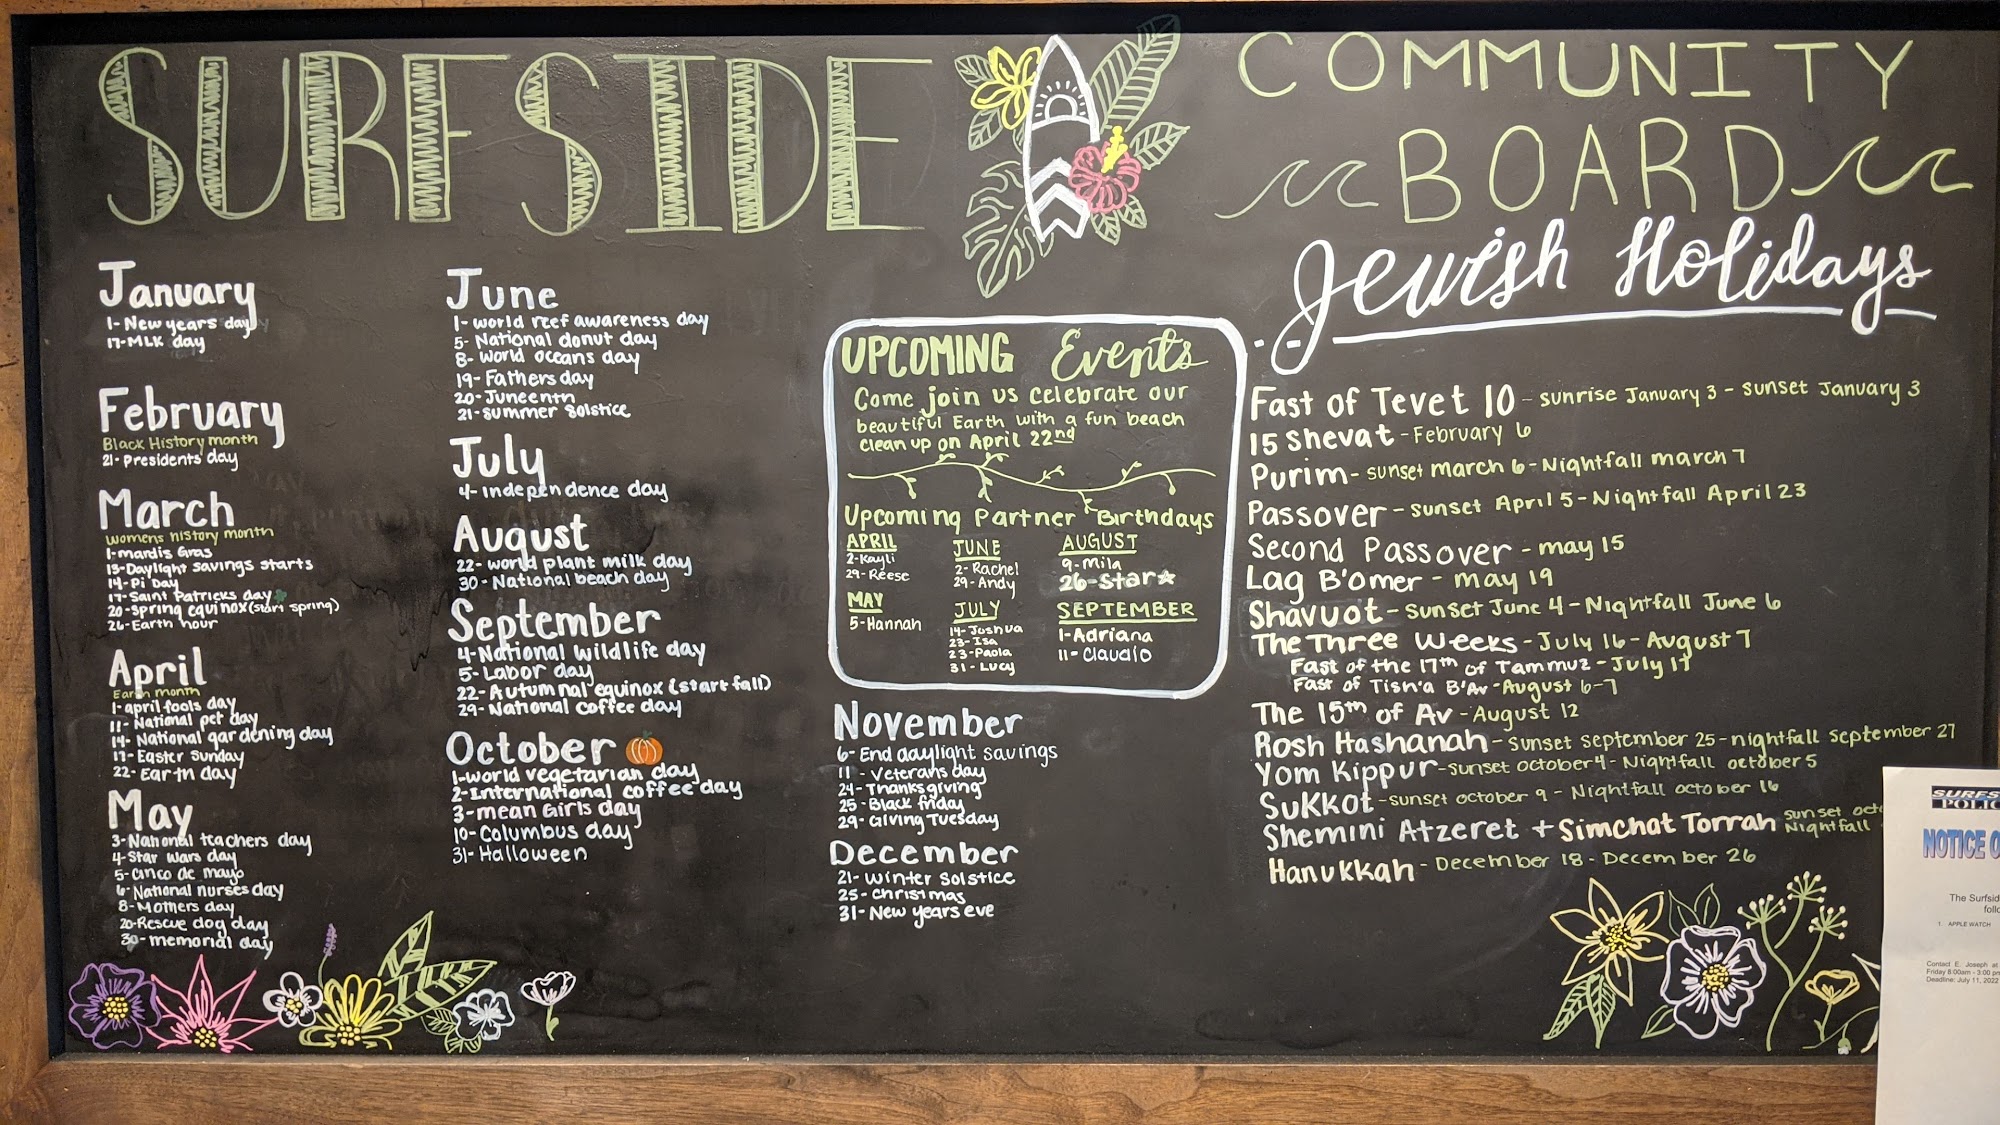 SURFSIDE
COMMUNITY
BOARD
January
1- New years day
17- MLK day
February
Black History month
21- Presidents day
March
womens history month
1- mardis Gras
13- Daylight savings starts
14- Pi Day
17- Saint Patricks day
20- Spring equinox (start spring)
26- Earth hour
April
Earth month
1- april fools day
11- National pet day
14- National gardening day
17- Easter Sunday
22- Earth day
May
3- National teachers day
4- Star wars day
5- cinco de mayo
6- National nurses day
8- Mothers day
20- Rescue dog day
30- memorial day
June
1- world reef awareness day
5- National donut day
8- World oceans day
19- Fathers day
20- Juneenth
21- summer solstice
July
4- independence day
August
22- world plant milk day
30- National beach day
September
4- National wildlife day
5- Labor day
22- Autumnal equinox (start fall)
29- National coffee day
October
1- world vegetarian day
2- International coffee day
3- mean Girls day
10- Columbus day
31- Halloween
UPCOMING Events
Come join us celebrate our
beautiful Earth with a fun beach
clean up on April 22nd
Upcoming Partner Birthdays
APRIL
2- Kayli
29- Reese
MAY
5- Hannah
JUNE
2- Rachel
29- Andy
JULY
14- Joshua
23- Isa
23- Paola
31- Lucy
AUGUST
9- Mila
26- Star
SEPTEMBER
1- Adriana
11- Claudio
November
6- End daylight savings
11 - Veterans day
24- Thanksgiving
25- Black friday
29- Giving Tuesday
December
21- Winter Solstice
25- Christmas
31- New years eve
Jewish Holidays
Fast of Tevet 10 - sunrise January 3 - sunset January 3
15 Shevat - February 6
Purim - sunset march 6 - Nightfall march 7
Passover - sunset April 5 - Nightfall April 23
Second Passover - may 15
Lag B'omer - may 19
Shavuot - sunset June 4 - Nightfall June 6
The Three Weeks - July 16 - August 7
Fast of the 17th of Tammuz - July 17
Fast of Tish'a B'Av - August 6-7
The 15th of Av - August 12
Rosh Hashanah - sunset september 25 - nightfall september 27
Yom Kippur - sunset october 4 - Nightfall october 5
Sukkot - sunset october 9 - Nightfall october 16
Shemini Atzeret + Simchat Torrah sunset oct
Nightfall
Hanukkah - December 18 - December 26
SURFS
POLIC
NOTICE O
The Surfsid
follo
1. APPLE WATCH
Contact E. Joseph at
Friday 8:00am - 3:00 pm
Deadline: July 11, 2022